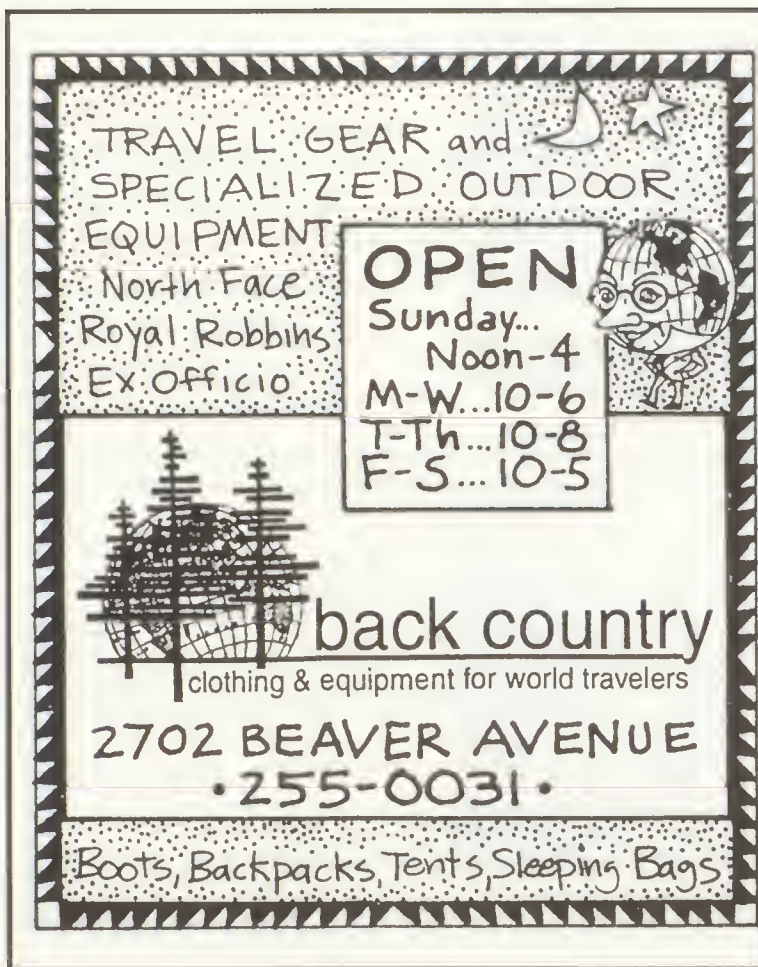 TRAVEL GEAR and
SPECIALIZED OUTDOOR
EQUIPMENT
North Face
Royal Robbins
Ex Officio
OPEN
Sunday...
Noon-4
M-W...10-6
T-Th...10-8
F-S...10-5
back country
clothing & equipment for world travelers
2702 BEAVER AVENUE
•255-0031•
Boots, Backpacks, Tents, Sleeping Bags